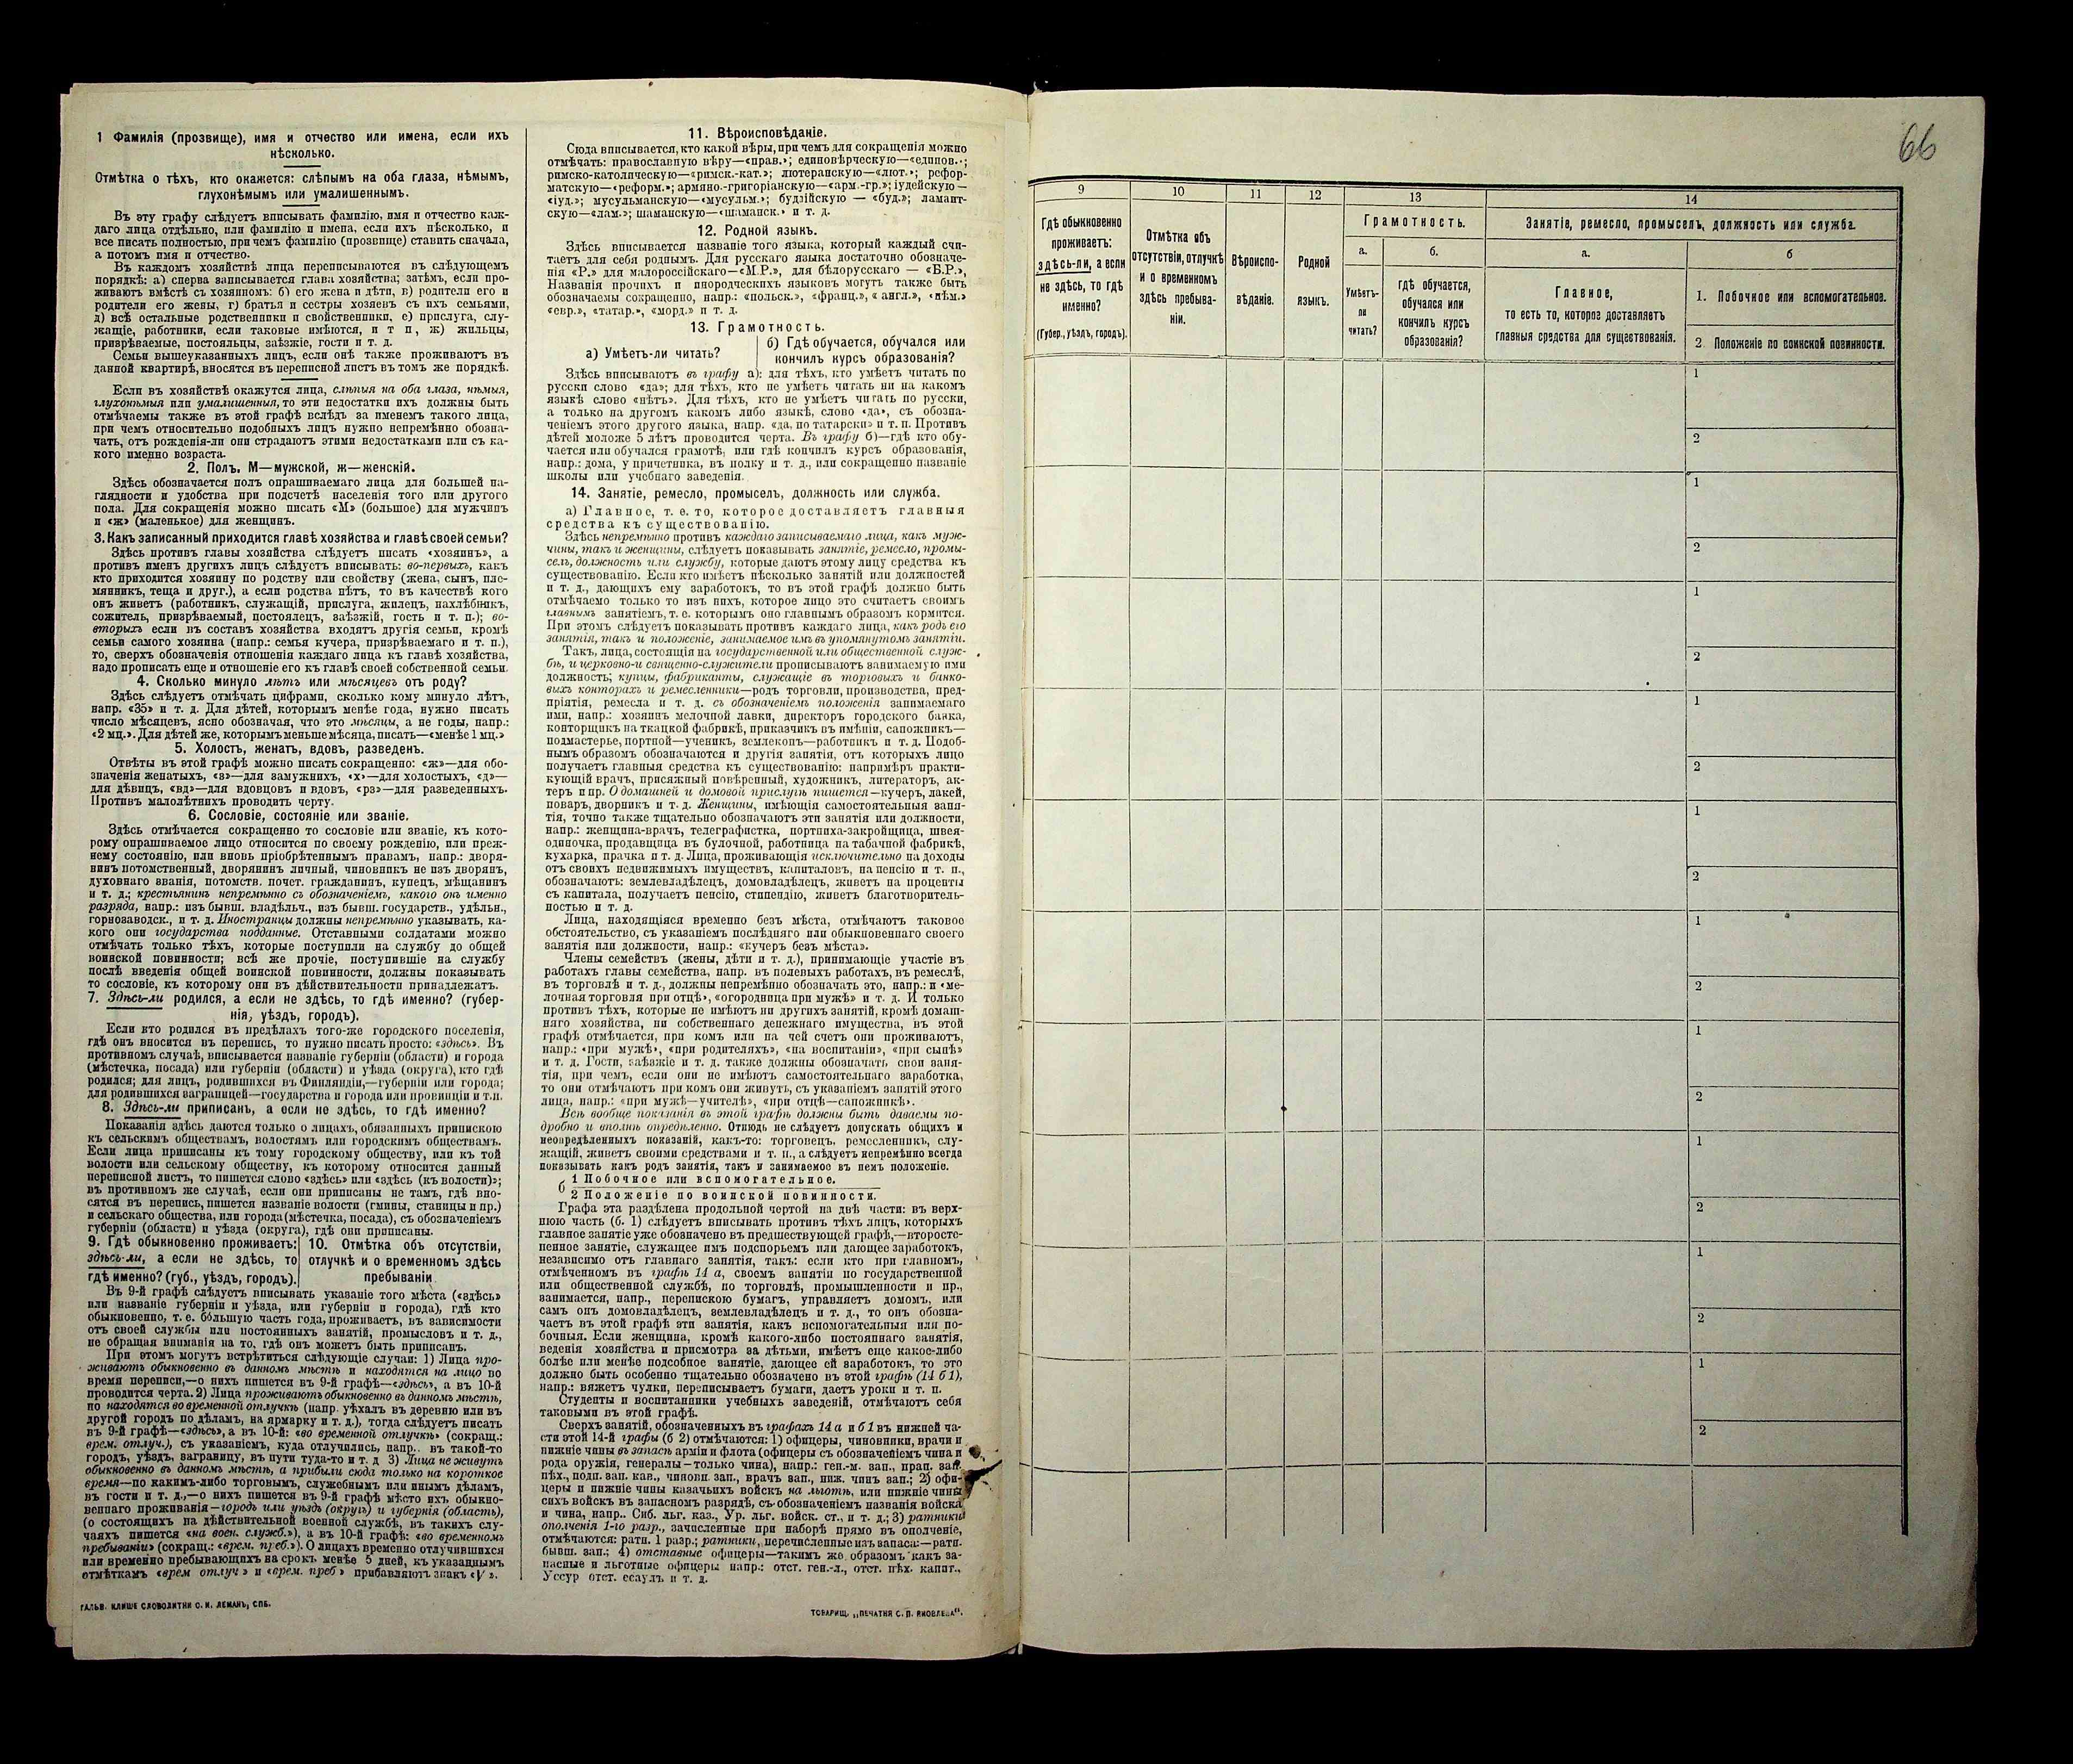 1 Фамилія (прозвище), имя и отчество или имена, если ихъ
нѣсколько.
Отмѣтка о тѣхъ, кто окажется: слѣпымъ на оба глаза, нѣмымъ,
глухонѣмымъ или умалишеннымъ.
Въ эту графу слѣдуетъ вписывать фамилію, имя и отчество каж-
даго лица отдѣльно, или фамилію и имена, если ихъ нѣсколько, и
все писать полностью, при чемъ фамилію (прозвище) ставить сначала,
а потомъ имя и отчество.
Въ каждомъ хозяйствѣ лица переписываются въ слѣдующемъ
порядкѣ: а) сперва записывается глава хозяйства; затѣмъ, если про-
живаютъ вмѣстѣ съ хозяиномъ: б) его жена и дѣти, в) родители его и
родители его жены, г) братья и сестры хозяевъ съ ихъ семьями,
д) всѣ остальные родственники и свойственники, е) прислуга, слу-
жащіе, работники, если таковые имѣются, и т п, ж) жильцы,
призрѣваемые, постояльцы, заѣзжіе, гости и т. д.
Семьи вышеуказанныхъ лицъ, если онѣ также проживаютъ въ
данной квартирѣ, вносятся въ переписной листъ въ томъ же порядкѣ.
Если въ хозяйствѣ окажутся лица, слѣпыя на оба глаза, нѣмыя,
глухонѣмыя или умалишенныя, то эти недостатки ихъ должны быть
отмѣчаемы также въ этой графѣ вслѣдъ за именемъ такого лица,
при чемъ относительно подобныхъ лицъ нужно непремѣнно обозна-
чать, отъ рожденія-ли они страдаютъ этими недостатками или съ ка-
кого именно возраста.
2. Полъ. М—мужской, ж—женскій.
Здѣсь обозначается полъ опрашиваемаго лица для большей на-
глядности и удобства при подсчетѣ населенія того или другого
пола. Для сокращенія можно писать «М» (большое) для мужчинъ
и «ж» (маленькое) для женщинъ.
3. Какъ записанный приходится главѣ хозяйства и главѣ своей семьи?
Здѣсь противъ главы хозяйства слѣдуетъ писать «хозяинъ», а
противъ именъ другихъ лицъ слѣдуетъ вписывать: во-первыхъ, какъ
кто приходится хозяину по родству или свойству (жена, сынъ, пле-
мянникъ, теща и друг.), а если родства нѣтъ, то въ качествѣ кого
онъ живетъ (работникъ, служащій, прислуга, жилецъ, нахлѣбникъ,
сожитель, призрѣваемый, постоялецъ, заѣзжій, гость и т. п.); во-
вторыхъ если въ составъ хозяйства входятъ другія семьи, кромѣ
семьи самого хозяина (напр.: семья кучера, призрѣваемаго и т. п.),
то, сверхъ обозначенія отношенія каждаго лица къ главѣ хозяйства,
надо прописать еще и отношеніе его къ главѣ своей собственной семьи.
4. Сколько минуло лѣтъ или мѣсяцевъ отъ роду?
Здѣсь слѣдуетъ отмѣчать цифрами, сколько кому минуло лѣтъ,
напр. «35» и т. д. Для дѣтей, которымъ менѣе года, нужно писать
число мѣсяцевъ, ясно обозначая, что это мѣсяцы, а не годы, напр.:
«2 мц.». Для дѣтей же, которымъ меньше мѣсяца, писать—«менѣе 1 мц.»
5. Холостъ, женатъ, вдовъ, разведенъ.
Отвѣты въ этой графѣ можно писать сокращенно: «ж»—для обо-
значенія женатыхъ, «з»—для замужнихъ, «х»—для холостыхъ, «д»—
для дѣвицъ, «вд»—для вдовцовъ и вдовъ, «рз»—для разведенныхъ.
Противъ малолѣтнихъ проводить черту.
6. Сословіе, состояніе или званіе.
Здѣсь отмѣчается сокращенно то сословіе или званіе, къ кото-
рому опрашиваемое лицо относится по своему рожденію, или преж-
нему состоянію, или вновь пріобрѣтеннымъ правамъ, напр.: дворя-
нинъ потомственный, дворянинъ личный, чиновникъ не изъ дворянъ,
духовнаго званія, потомств. почет. гражданинъ, купецъ, мѣщанинъ
и т. д.; крестьянинъ непремѣнно съ обозначеніемъ, какого онъ именно
разряда, напр.: изъ бывш. владѣльч., изъ бывш. государств., удѣльн.,
горнозаводск., и т. д. Иностранцы должны непремѣнно указывать, ка-
кого они государства подданные. Отставными солдатами можно
отмѣчать только тѣхъ, которые поступили на службу до общей
воинской повинности; всѣ же прочіе, поступившіе на службу
послѣ введенія общей воинской повинности, должны показывать
то сословіе, къ которому они въ дѣйствительности принадлежатъ.
7. Здѣсь-ли родился, а если не здѣсь, то гдѣ именно? (губер-
нія, уѣздъ, городъ).
Если кто родился въ предѣлахъ того-же городского поселенія,
гдѣ онъ вносится въ перепись, то нужно писать просто: «здѣсь». Въ
противномъ случаѣ, вписывается названіе губерніи (области) и города
(мѣстечка, посада) или губерніи (области) и уѣзда (округа), кто гдѣ
родился; для лицъ, родившихся въ Финляндіи,—губерніи или города;
для родившихся заграницей—государства и города или провинціи и т.п.
8. Здѣсь-ли приписанъ, а если не здѣсь, то гдѣ именно?
Показанія здѣсь даются только о лицахъ, обязанныхъ припискою
къ сельскимъ обществамъ, волостямъ или городскимъ обществамъ.
Если лица приписаны къ тому городскому обществу, или къ той
волости или сельскому обществу, къ которому относится данный
переписной листъ, то пишется слово «здѣсь» или «здѣсь (къ волости)»;
въ противномъ же случаѣ, если они приписаны не тамъ, гдѣ вно-
сятся въ перепись, пишется названіе волости (гмины, станицы и пр.)
и сельскаго общества, или города (мѣстечка, посада), съ обозначеніемъ
губерніи (области) и уѣзда (округа), гдѣ они приписаны.
9. Гдѣ обыкновенно проживаетъ:
здѣсь-ли, а если не здѣсь, то
гдѣ именно? (губ., уѣздъ, городъ).
10. Отмѣтка объ отсутствіи,
отлучкѣ и о временномъ здѣсь
пребываніи
Въ 9-й графѣ слѣдуетъ вписывать указаніе того мѣста («здѣсь»
или названіе губерніи и уѣзда, или губерніи и города), гдѣ кто
обыкновенно, т. е. большую часть года, проживаетъ, въ зависимости
отъ своей службы или постоянныхъ занятій, промысловъ и т. д.,
не обращая вниманія на то, гдѣ онъ можетъ быть приписанъ.
При этомъ могутъ встрѣтиться слѣдующіе случаи: 1) Лица про-
живаютъ обыкновенно въ данномъ мѣстѣ и находятся на лицо во
время переписи,—о нихъ пишется въ 9-й графѣ—«здѣсь», а въ 10-й
проводится черта. 2) Лица проживаютъ обыкновенно въ данномъ мѣстѣ,
но находятся во временной отлучкѣ (напр. уѣхалъ въ деревню или въ
другой городъ по дѣламъ, на ярмарку и т. д.), тогда слѣдуетъ писать
въ 9-й графѣ—«здѣсь», а въ 10-й: «во временной отлучкѣ» (сокращ.:
врем. отлуч.), съ указаніемъ, куда отлучились, напр.. въ такой-то
городъ, уѣздъ, заграницу, въ пути туда-то и т. д 3) Лица не живутъ
обыкновенно въ данномъ мѣстѣ, а прибыли сюда только на короткое
время—по какимъ-либо торговымъ, служебнымъ или инымъ дѣламъ,
въ гости и т. д.,—о нихъ пишется въ 9-й графѣ мѣсто ихъ обыкно-
веннаго проживанія—городъ или уѣздъ (округъ) и губернія (область),
(о состоящихъ на дѣйствительной военной службѣ, въ такихъ слу-
чаяхъ пишется «на воен. служб.»), а въ 10-й графѣ: «во временномъ
пребываніи» (сокращ.: «врем. преб.»). О лицахъ временно отлучившихся
или временно пребывающихъ на срокъ менѣе 5 дней, къ указаннымъ
отмѣткамъ «врем отлуч» и «врем. преб» прибавляютъ знакъ «V».
ГАЛЬВ. КЛИШЕ СЛОВОЛИТНИ О. И. ЛЕМАНЪ, СПБ.
11. Вѣроисповѣданіе.
Сюда вписывается, кто какой вѣры, при чемъ для сокращенія можно
отмѣчать: православную вѣру—«прав.»; единовѣрческую—«единов.»;
римско-католическую—«римск.-кат.»; лютеранскую—«лют.»; рефор-
матскую—«реформ.»; армяно-григоріанскую—«арм.-гр.»; іудейскую—
«іуд.»; мусульманскую—«мусульм.»; буддійскую — «буд.»; ламаит-
скую—«лам.»; шаманскую—«шаманск.» и т. д.
12. Родной языкъ.
Здѣсь вписывается названіе того языка, который каждый счи-
таетъ для себя роднымъ. Для русскаго языка достаточно обозначе-
нія «Р.» для малороссійскаго—«М.Р.», для бѣлорусскаго — «Б.Р.»,
Названія прочихъ и инородческихъ языковъ могутъ также быть
обозначаемы сокращенно, напр.: «польск.», «франц.», «англ.», «нѣм.»
«евр.», «татар.», «морд.» и т. д.
13. Грамотность.
а) Умѣетъ-ли читать?
б) Гдѣ обучается, обучался или
кончилъ курсъ образованія?
Здѣсь вписываютъ въ графу а): для тѣхъ, кто умѣетъ читать по
русски слово «да»; для тѣхъ, кто не умѣетъ читать ни на какомъ
языкѣ слово «нѣтъ». Для тѣхъ, кто не умѣетъ читать по русски,
а только на другомъ какомъ либо языкѣ, слово «да», съ обозна-
ченіемъ этого другого языка, напр. «да, по татарски» и т. п. Противъ
дѣтей моложе 5 лѣтъ проводится черта. Въ графу б)—гдѣ кто обу-
чается или обучался грамотѣ, или гдѣ кончилъ курсъ образованія,
напр.: дома, у причетника, въ полку и т. д., или сокращенно названіе
школы или учебнаго заведенія.
14. Занятіе, ремесло, промыселъ, должность или служба.
а) Главное, т. е. то, которое доставляетъ главныя
средства къ существованію.
Здѣсь непремѣнно противъ каждаго записываемаго лица, какъ муж-
чины, такъ и женщины, слѣдуетъ показывать занятіе, ремесло, промы-
селъ, должность или службу, которые даютъ этому лицу средства къ
существованію. Если кто имѣетъ нѣсколько занятій или должностей
и т. д., дающихъ ему заработокъ, то въ этой графѣ должно быть
отмѣчаемо только то изъ нихъ, которое лицо это считаетъ своимъ
главнымъ занятіемъ, т. е. которымъ оно главнымъ образомъ кормится.
При этомъ слѣдуетъ показывать противъ каждаго лица, какъ родъ его
занятія, такъ и положеніе, занимаемое имъ въ упомянутомъ занятіи.
Такъ, лица, состоящія на государственной или общественной служ-
бѣ, и церковно-и священно-служители прописываютъ занимаемую ими
должность; купцы, фабриканты, служащіе въ торговыхъ и банко-
выхъ конторахъ и ремесленники—родъ торговли, производства, пред-
пріятія, ремесла и т. д. съ обозначеніемъ положенія занимаемаго
ими, напр.: хозяинъ мелочной лавки, директоръ городского банка,
конторщикъ на ткацкой фабрикѣ, приказчикъ въ имѣніи, сапожникъ—
подмастерье, портной—ученикъ, землекопъ—работникъ и т. д. Подоб-
нымъ образомъ обозначаются и другія занятія, отъ которыхъ лицо
получаетъ главныя средства къ существованію: напримѣръ практи-
кующій врачъ, присяжный повѣренный, художникъ, литераторъ, ак-
теръ и пр. О домашней и домовой прислугѣ пишется—кучеръ, лакей,
поваръ, дворникъ и т. д. Женщины, имѣющія самостоятельныя заня-
тія, точно также тщательно обозначаютъ эти занятія или должности,
напр.: женщина-врачъ, телеграфистка, портниха-закройщица, швея-
одиночка, продавщица въ булочной, работница на табачной фабрикѣ,
кухарка, прачка и т. д. Лица, проживающія исключительно на доходы
отъ своихъ недвижимыхъ имуществъ, капиталовъ, на пенсію и т. п.,
обозначаютъ: землевладѣлецъ, домовладѣлецъ, живетъ на проценты
съ капитала, получаетъ пенсію, стипендію, живетъ благотворитель-
ностью и т. д.
Лица, находящіяся временно безъ мѣста, отмѣчаютъ таковое
обстоятельство, съ указаніемъ послѣдняго или обыкновеннаго своего
занятія или должности, напр.: «кучеръ безъ мѣста».
Члены семействъ (жены, дѣти и т. д.), принимающіе участіе въ
работахъ главы семейства, напр. въ полевыхъ работахъ, въ ремеслѣ,
въ торговлѣ и т. д., должны непремѣнно обозначать это, напр.: и «ме-
лочная торговля при отцѣ», «огородница при мужѣ» и т. д. И только
противъ тѣхъ, которые не имѣютъ ни другихъ занятій, кромѣ домаш-
няго хозяйства, ни собственнаго денежнаго имущества, въ этой
графѣ отмѣчается, при комъ или на чей счетъ они проживаютъ,
напр.: «при мужѣ», «при родителяхъ», «на воспитаніи», «при сынѣ»
и т. д. Гости, заѣзжіе и т. д. также должны обозначать свои заня-
тія, при чемъ, если они не имѣютъ самостоятельнаго заработка,
то они отмѣчаютъ при комъ они живутъ, съ указаніемъ занятій этого
лица, напр.: «при мужѣ—учителѣ», «при отцѣ—сапожникѣ».
Всѣ вообще показанія въ этой графѣ должны быть даваемы по-
дробно и вполнѣ опредѣленно. Отнюдь не слѣдуетъ допускать общихъ и
неопредѣленныхъ показаній, какъ-то: торговецъ, ремесленникъ, слу-
жащій, живетъ своими средствами и т. п., а слѣдуетъ непремѣнно всегда
показывать какъ родъ занятія, такъ и занимаемое въ немъ положеніе.
б
1 Побочное или вспомогательное.
2 Положеніе по воинской повинности.
Графа эта раздѣлена продольной чертой на двѣ части: въ верх-
нюю часть (б. 1) слѣдуетъ вписывать противъ тѣхъ лицъ, которыхъ
главное занятіе уже обозначено въ предшествующей графѣ,—второсте-
пенное занятіе, служащее имъ подспорьемъ или дающее заработокъ,
независимо отъ главнаго занятія, такъ: если кто при главномъ,
отмѣченномъ въ графѣ 14 а, своемъ занятіи по государственной
или общественной службѣ, по торговлѣ, промышленности и пр.,
занимается, напр., перепискою бумагъ, управляетъ домомъ, или
самъ онъ домовладѣлецъ, землевладѣлецъ и т. д., то онъ обозна-
чаетъ въ этой графѣ эти занятія, какъ вспомогательныя или по-
бочныя. Если женщина, кромѣ какого-либо постояннаго занятія,
веденія хозяйства и присмотра за дѣтьми, имѣетъ еще какое-либо
болѣе или менѣе подсобное занятіе, дающее ей заработокъ, то это
должно быть особенно тщательно обозначено въ этой графѣ (14 б 1),
напр.: вяжетъ чулки, переписываетъ бумаги, даетъ уроки и т. п.
Студенты и воспитанники учебныхъ заведеній, отмѣчаютъ себя
таковыми въ этой графѣ.
Сверхъ занятій, обозначенныхъ въ графахъ 14 а и б 1 въ нижней ча-
сти этой 14-й графы (б 2) отмѣчаются: 1) офицеры, чиновники, врачи и
нижніе чины въ запасѣ арміи и флота (офицеры съ обозначеніемъ чина и
рода оружія, генералы—только чина), напр.: ген.-м. зап., прап. зап.
пѣх., подп. зап. кав., чиновн. зап., врачъ зап., ниж. чинъ зап.; 2) офи-
церы и нижніе чины казачьихъ войскъ на льготѣ, или нижніе чины
сихъ войскъ въ запасномъ разрядѣ, съ обозначеніемъ названія войска
и чина, напр.. Сиб. льг. каз., Ур. льг. войск. ст., и т. д.; 3) ратники
ополченія 1-го разр., зачисленные при наборѣ прямо въ ополченіе,
отмѣчаются: ратн. 1 разр.; ратники, перечисленные изъ запаса:—ратн.
бывш. зап.; 4) отставные офицеры—такимъ же образомъ какъ за-
пасные и льготные офицеры напр.: отст. ген.-л., отст. пѣх. капит.,
Уссур отст. есаулъ и т. д.
ТОВАРИЩ. „ПЕЧАТНЯ С. П. ЯКОВЛЕВА“.
66
9
10
11
12
13
14
Гдѣ обыкновенно
проживаетъ:
здѣсь-ли, а если
не здѣсь, то гдѣ
именно?
(Губер., уѣздъ, городъ).
Отмѣтка объ
отсутствіи, отлучкѣ
и о временномъ
здѣсь пребыва-
ніи.
Вѣроиспо-
вѣданіе.
Родной
языкъ.
Грамотность.
а.
Умѣетъ-
ли
читать?
б.
гдѣ обучается,
обучался или
кончилъ курсъ
образованія?
Занятіе, ремесло, промыселъ, должность или служба.
а.
Главное,
то есть то, которое доставляетъ
главныя средства для существованія.
б
1. Побочное или вспомогательное.
2 Положеніе по воинской повинности.
1
2
1
2
1
2
1
2
1
2
1
2
1
2
1
2
1
2
1
2